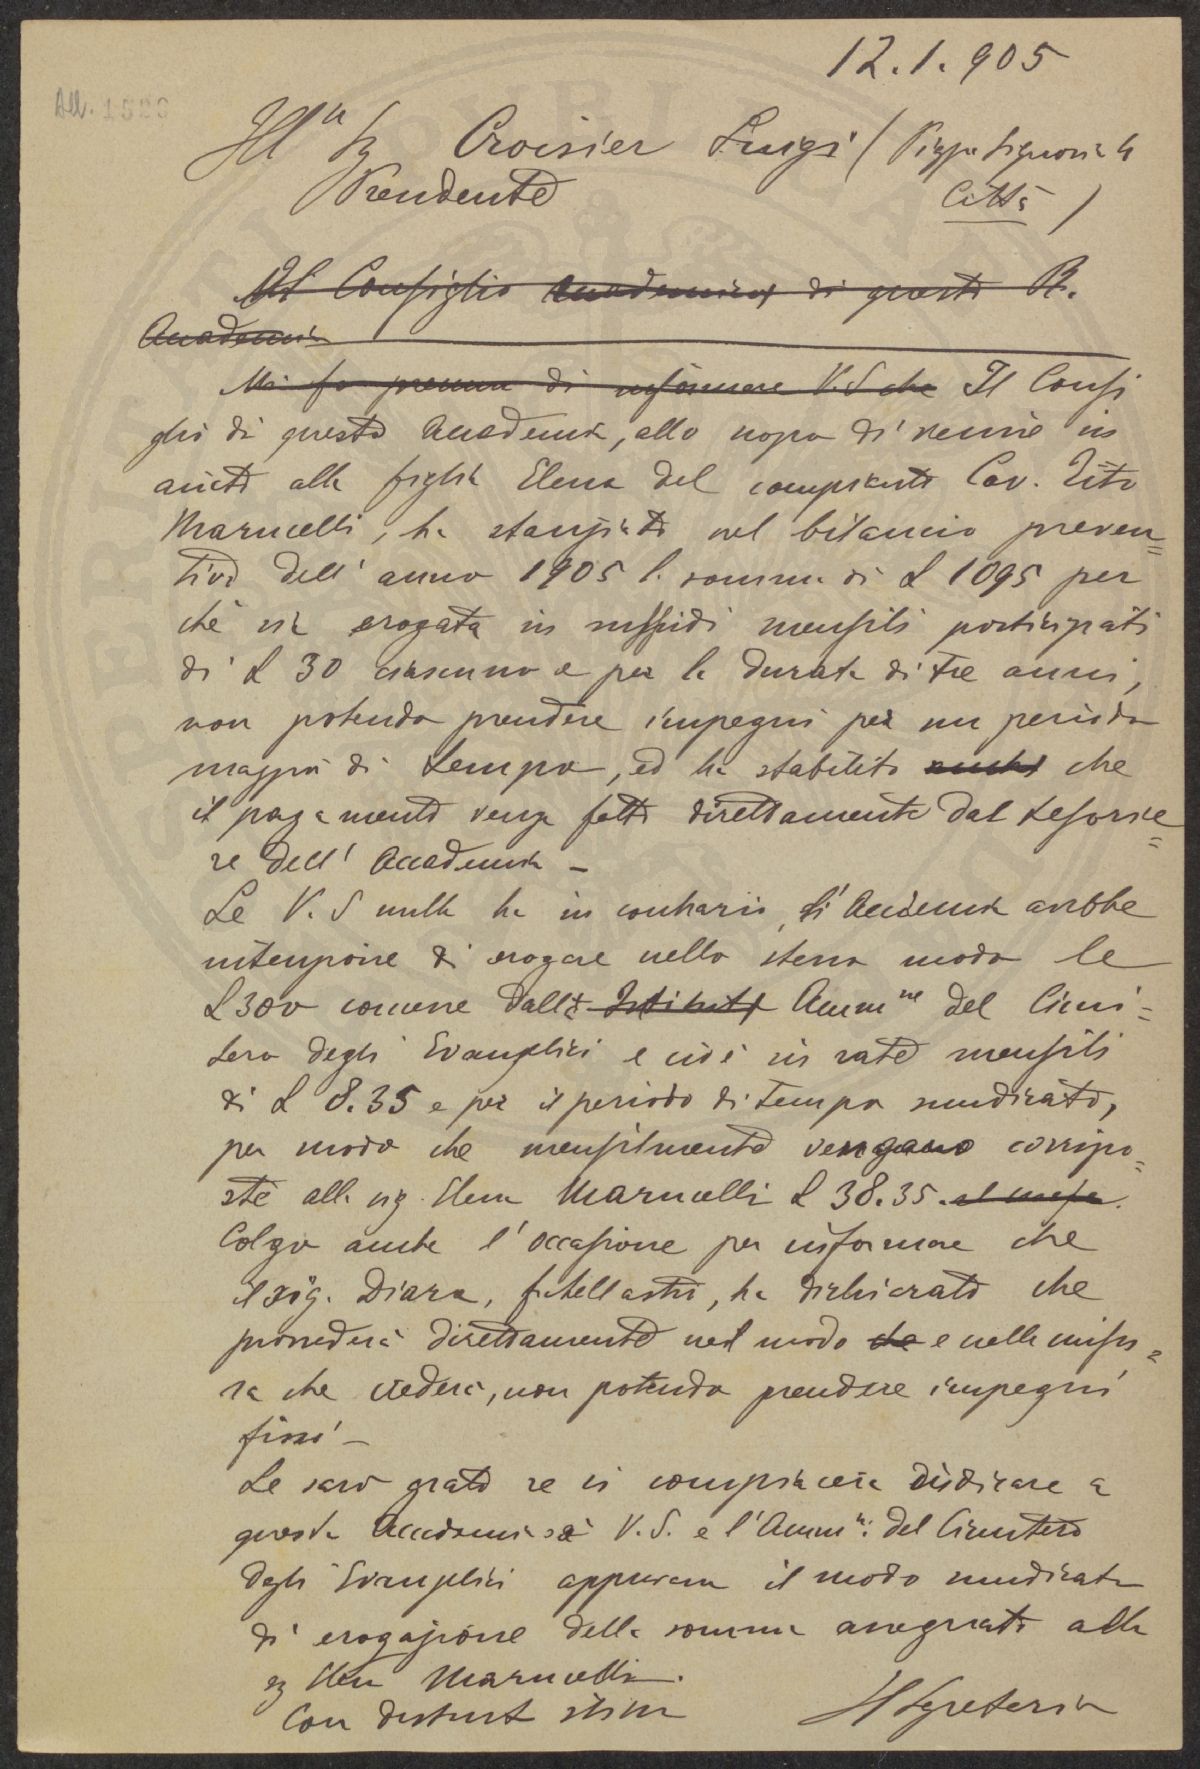 12.1.905
All. 1520
Ill.º Sig Croisier Luigi (Piazza Signoria 4
Presidente Città)
Il Consiglio Accademico di questa R.
Accademia
Mi fo premura di informare V.S che Il Consi
glio di questa Accademia, allo scopo di venire in
aiuto alla figlia Elena del compianto Cav. Tito
Marucelli, ha stanziato nel bilancio preven=
tivo dell' anno 1905 la somma di L 1095 per
chè sia erogata in sussidi mensili posticipati
di L 30 ciascuno e per la durata di tre anni,
non potendo prendere impegni per un periodo
maggior di tempo, ed ha stabilito anche che
il pagamento venga fatto direttamente dal tesorie=
re dell' Accademia -
Se V. S nulla ha in contrario, l' Accademia avrebbe
intenzione di erogare nello stesso modo le
L 300 concesse dall' Istituto Ammne del Cimi=
tero degli Evangelici e cioè in rate mensili
di L 8.35 e per il periodo di tempo suindicato,
per modo che mensilmente vengano corrispo=
ste alla sig. Elena Marucelli L 38.35. al mese.
Colgo anche l' occasione per informare che
il sig. Diara, fratellastro, ha dichiarato che
provvederà direttamente nel modo che e nella misu=
ra che crederà, non potendo prendere impegni
fissi -
Le sarò grato se si compiacerà d'indicare a
questa Accademia se V.S. e l' Ammne del Cimitero
degli Evangelici approvano il modo suindicato
di erogazione della somma assegnata alla
sig Elena Marucelli.
Con distinta stima Il Segretario